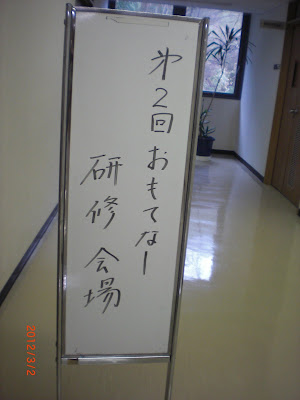 第2回おもてなし
研修会場
2012/3/2